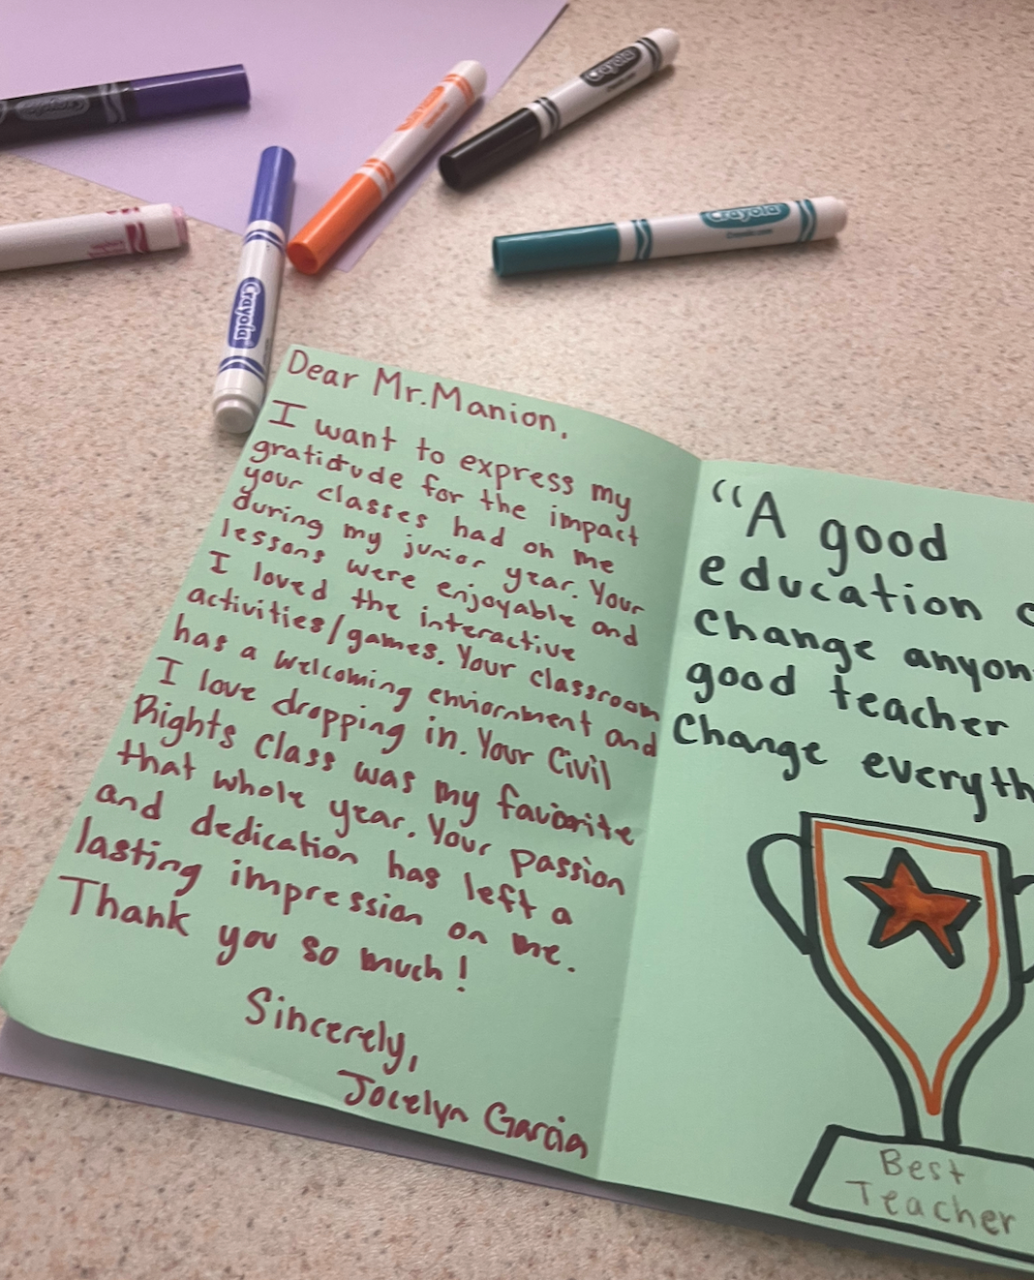 Crayola
Crayola
Crayola
Crayola
Crayola.com
Dear Mr. Manion,
I want to express my
gratidude for the impact
your classes had on me
during my junior year. Your
lessons were enjoyable and
I loved the interactive
activities/games. Your classroom
has a welcoming enviornment and
I love dropping in. Your Civil
Rights Class was my favorite
that whole year. Your passion
and dedication has left a
lasting impression on me.
Thank you so much!
Sincerely,
Jocelyn Garcia
“A good
education c
change anyon
good teacher
Change everyth
Best
Teacher